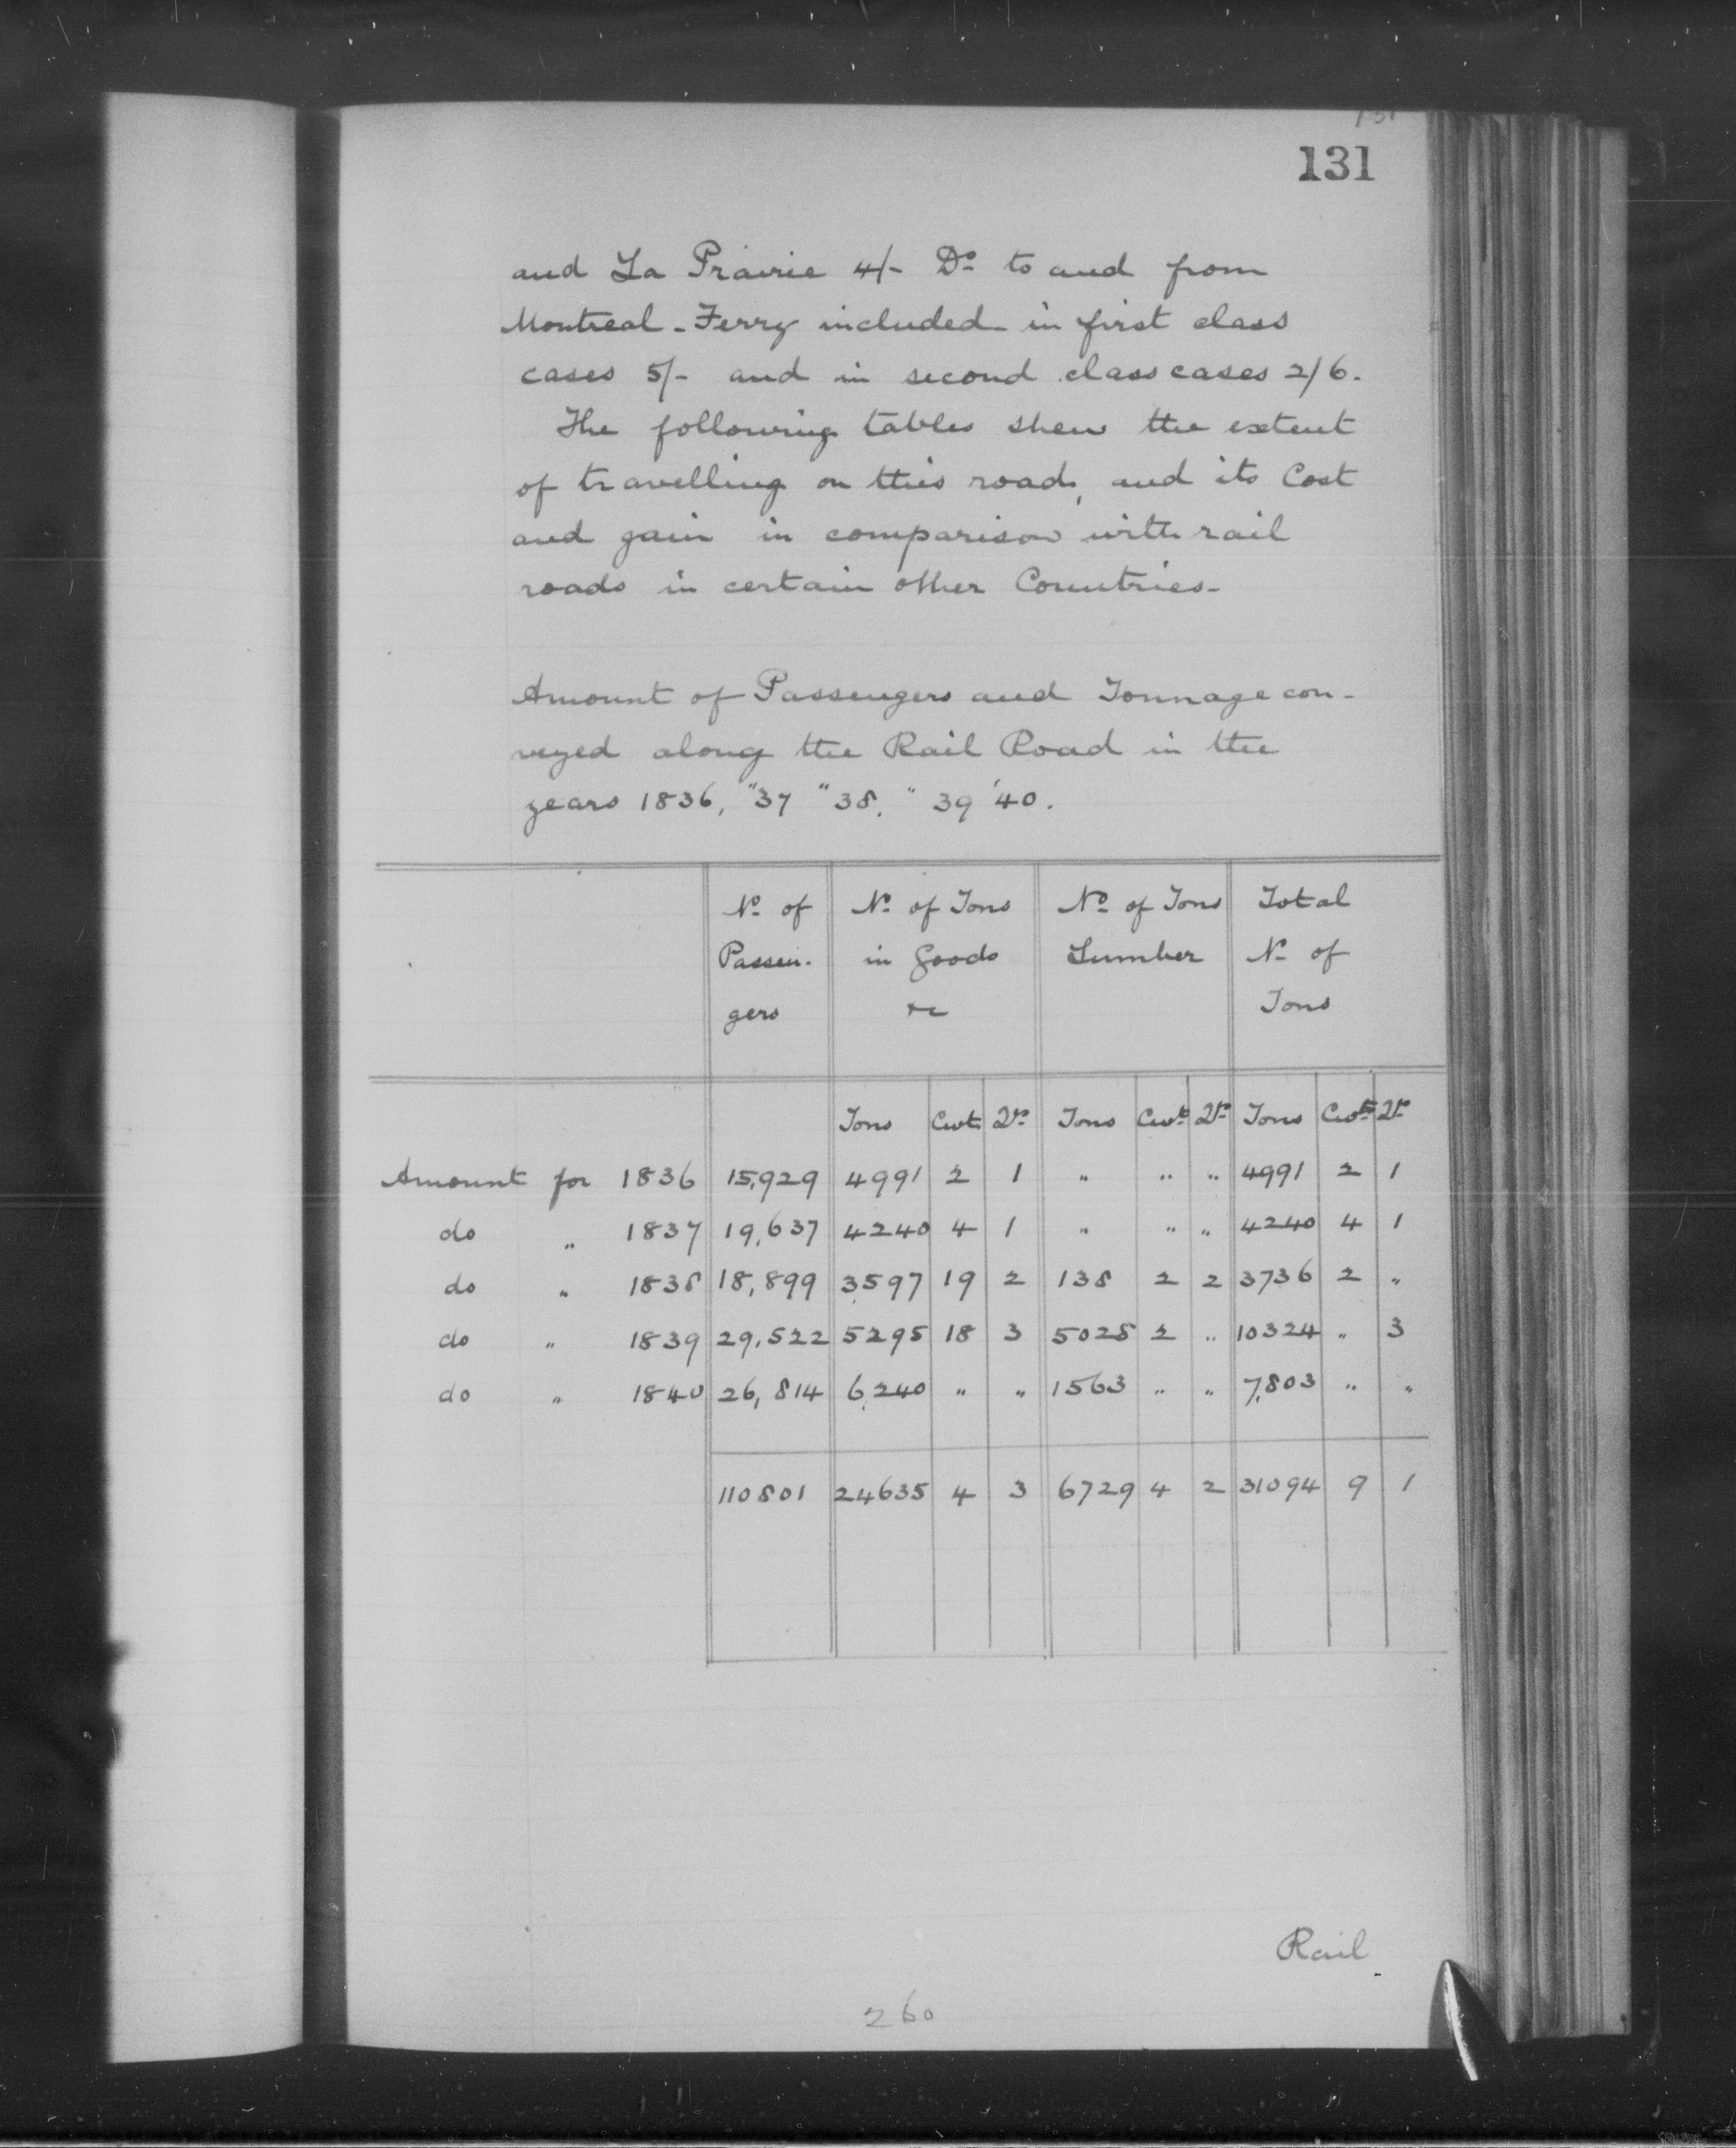 131
and La Prairie 4/- Do to and from
Montreal - Ferry included in first class
cases 5/- and in second class cases 2/6.
The following tables shew the extent
of travelling on this road, and its Cost
and gain in comparison with rail
roads in certain other Countries-
Amount of Passengers and Tonnage con-
veyed along the Rail Road in the
years 1836, "37 "38, " 39 '40.
No of Passen- gers | No of Tons in Goods &c | No of Tons Lumber | Total No of Tons
Tons Cwt Qrs Tons Cwt Qrs Tons Cwts Qrs
Amount for 1836 15,929 4991 2 1 " " " 4991 2 1
do " 1837 19,637 4240 4 1 " " " 4240 4 1
do " 1838 18,899 3597 19 2 138 2 2 3736 2 "
do " 1839 29,522 5295 18 3 5028 2 " 10324 " 3
do " 1840 26,814 6,240 " " 1563 " " 7,803 " "
110801 24635 4 3 6729 4 2 31094 9 1
Rail
260